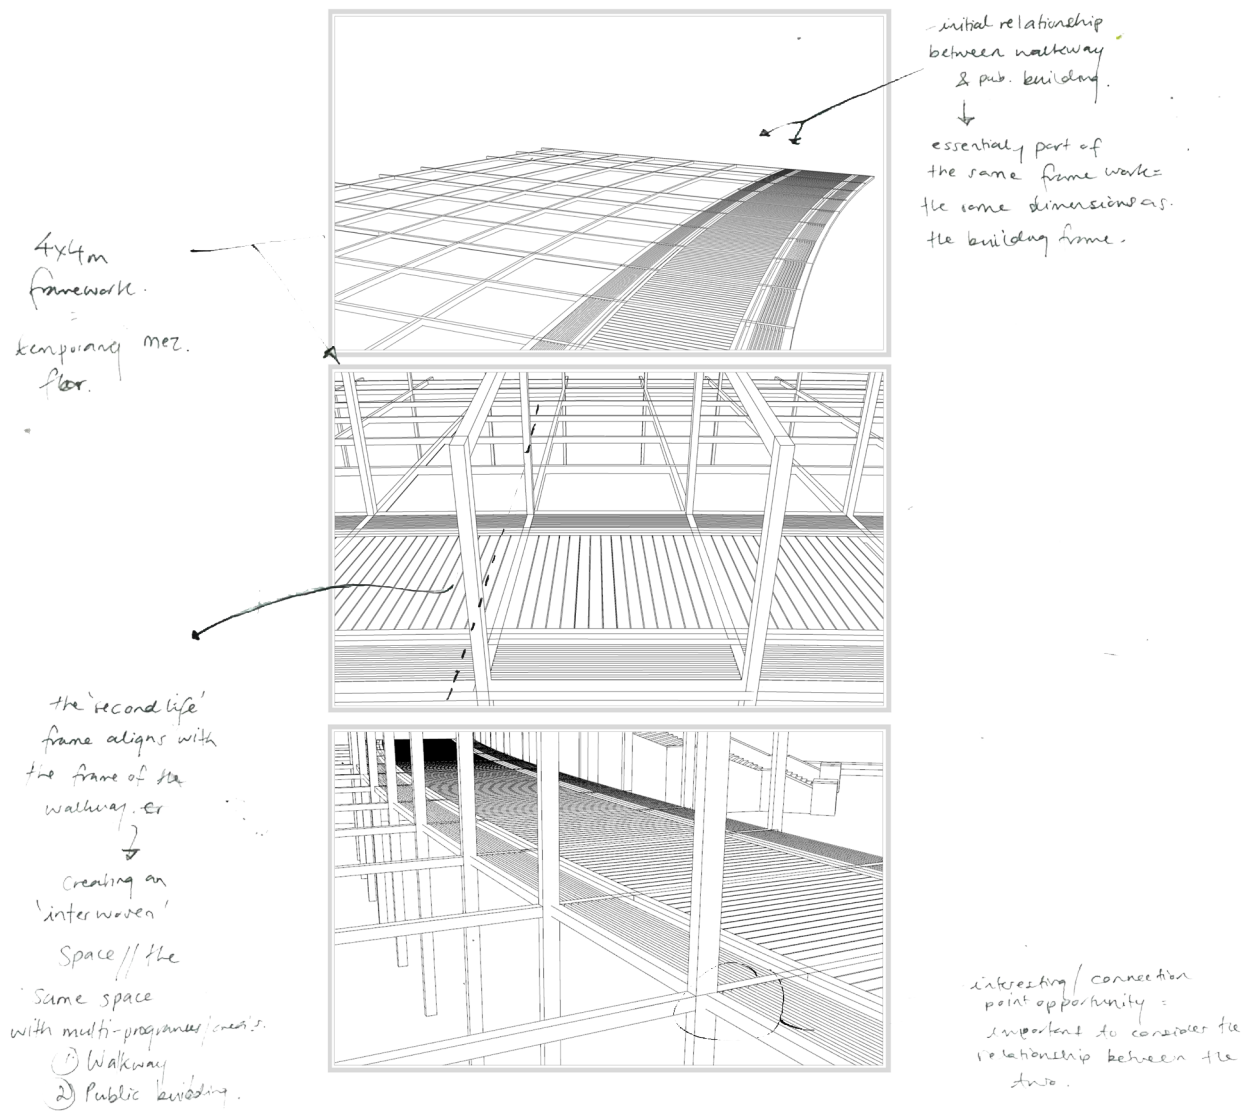 initial relationship
between walkway
& pub. building.
essentially part of
the same frame work=
the same dimensions as.
the building frame.
4x4m
framework.
=
temporary mez.
floor.
the 'second life'
frame aligns with
the frame of the
walkway.
creating an
'interwoven'
space // the
same space
with multi-programes/
① Walkway
② Public building.
interesting / connection
point opportunity =
important to consider the
relationship between the
two.